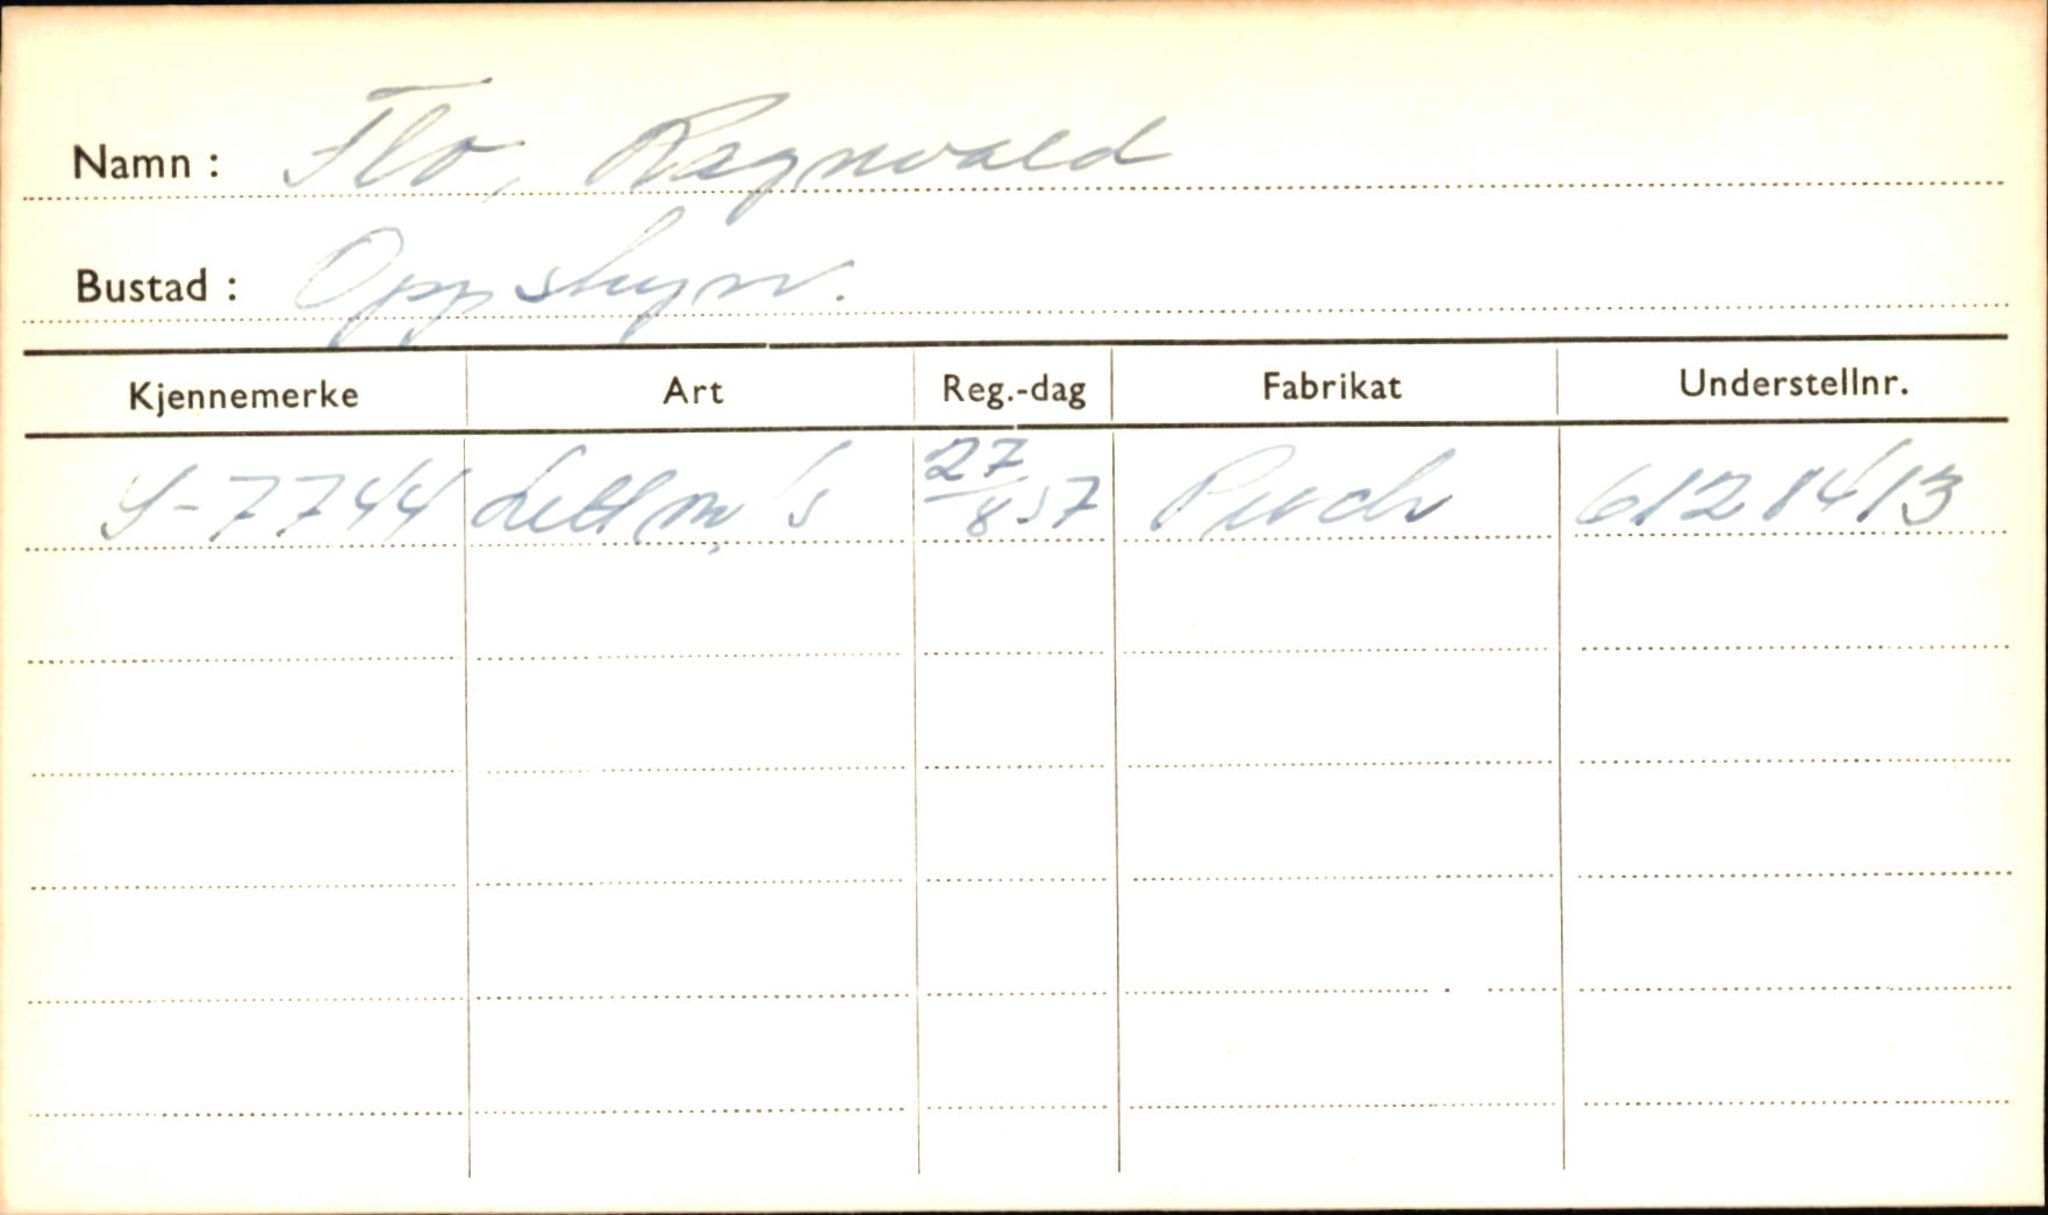 Namn : Flo, Ragnvald
Bustad : Oppstryn.
Kjennemerke Art Reg.-dag Fabrikat Understellnr.
S-7744 Lettm, s 27/8 57 Puch 6121413